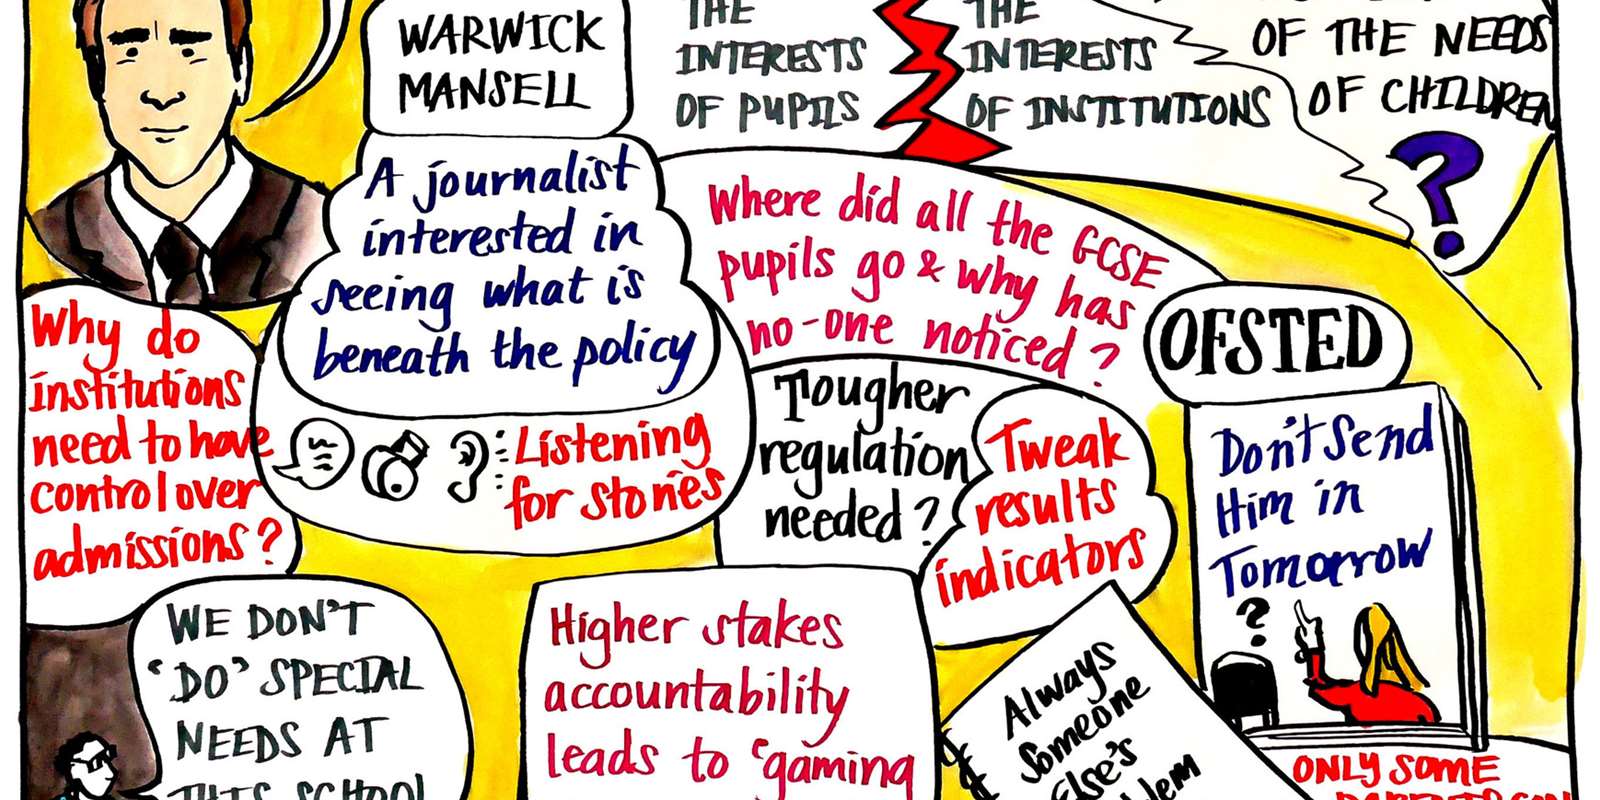 WARWICK
MANSELL
THE
INTERESTS
OF PUPILS
THE
INTERESTS
OF INSTITUTIONS
OF THE NEEDS
OF CHILDREN
?
A journalist
interested in
seeing what is
beneath the policy
Listening
for stories
Where did all the GCSE
pupils go & why has
no-one noticed?
OFSTED
Why do
institutions
need to have
control over
admissions?
Tougher
regulation
needed?
Tweak
results
indicators
Don't Send
Him in
Tomorrow
?
WE DON'T
'DO' SPECIAL
NEEDS AT
THIS SCHOOL
Higher stakes
accountability
leads to 'gaming
Always
Someone
Else's
ONLY SOME